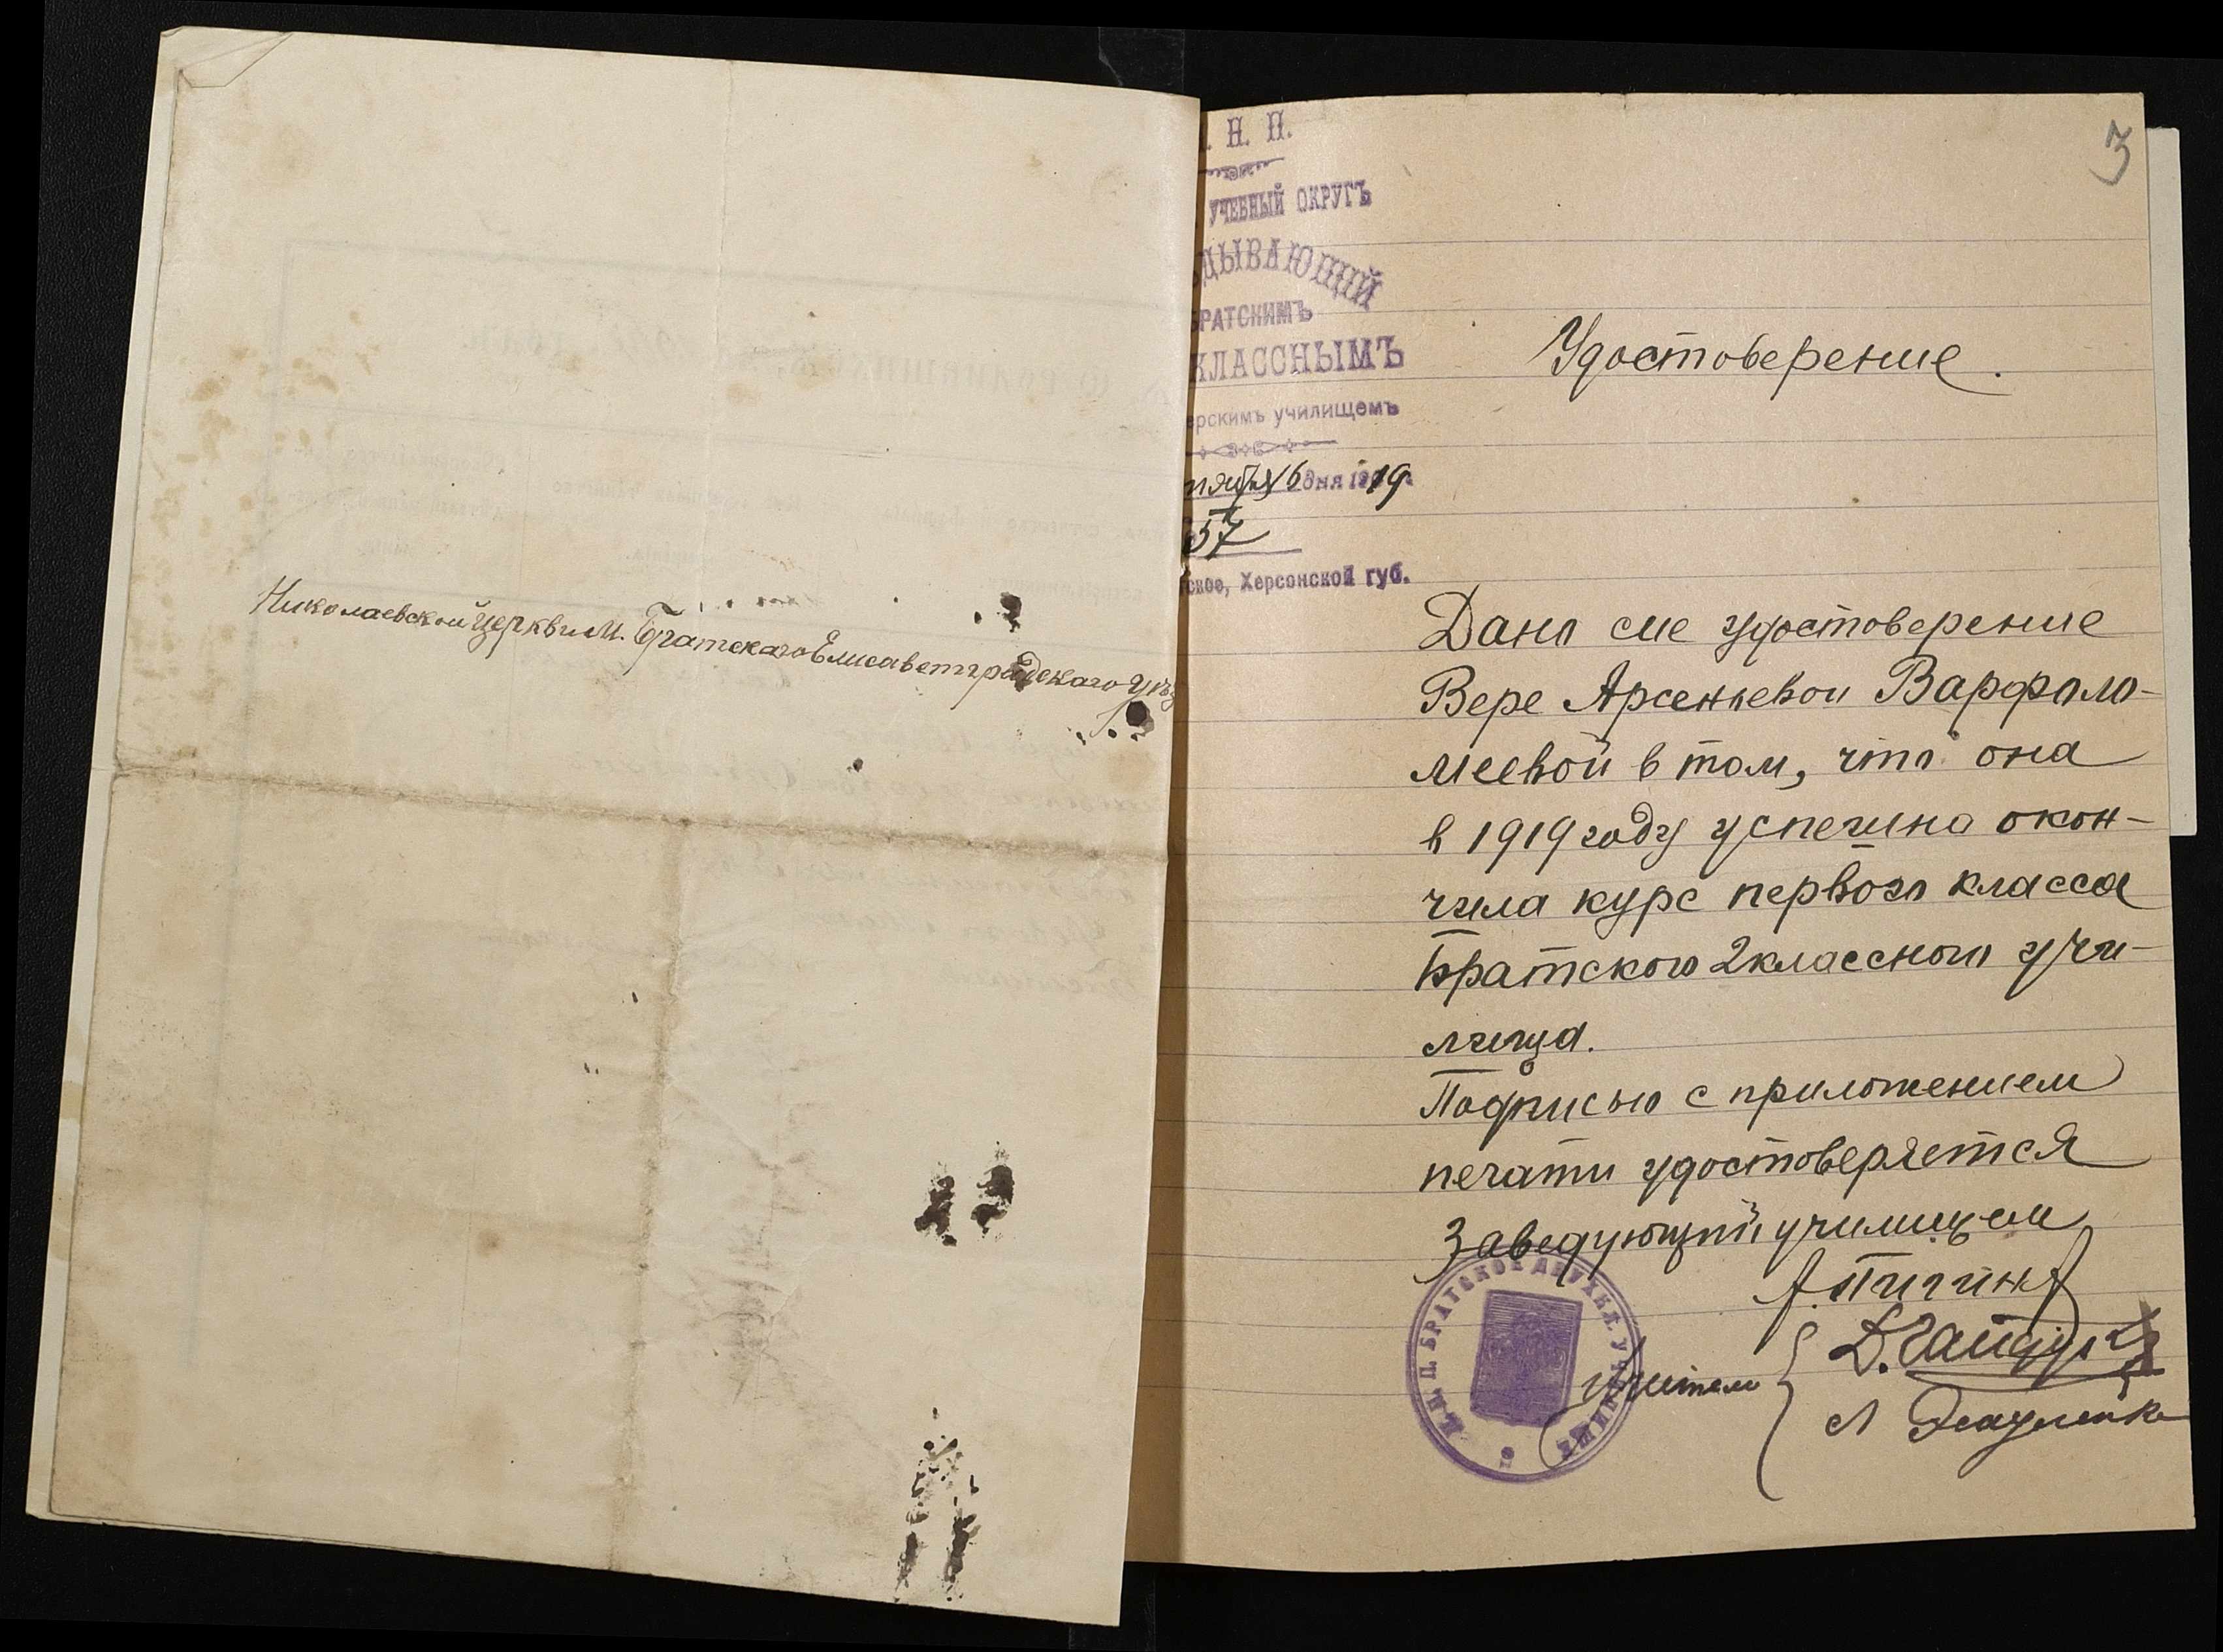 Николаевской церкви м. Братскаго Елисаветградскаго уѣз
3
. Н. П.
УЧЕБНЫЙ ОКРУГЪ
ДЫВАЮЩІЙ
БРАТСКИМЪ
КЛАССНЫМЪ
ерскимъ училищемъ
нтября 6 дня 1919
57
ское, Херсонской губ.
Удостоверение.
Дано сие удостоверение
Вере Арсеньевой Варфоло-
меевой в том, что она
в 1919 году успешно окон-
чила курс первого класса
Братского 2классного учи-
лища.
Подписью с приложением
печати удостоверяется
Заведующий училищем
А. Пигин
Учителя
Д. Гайдук
Л
М.Н.П. БРАТСКОЕ ДВУХКЛ. УЧИЛИЩЕ